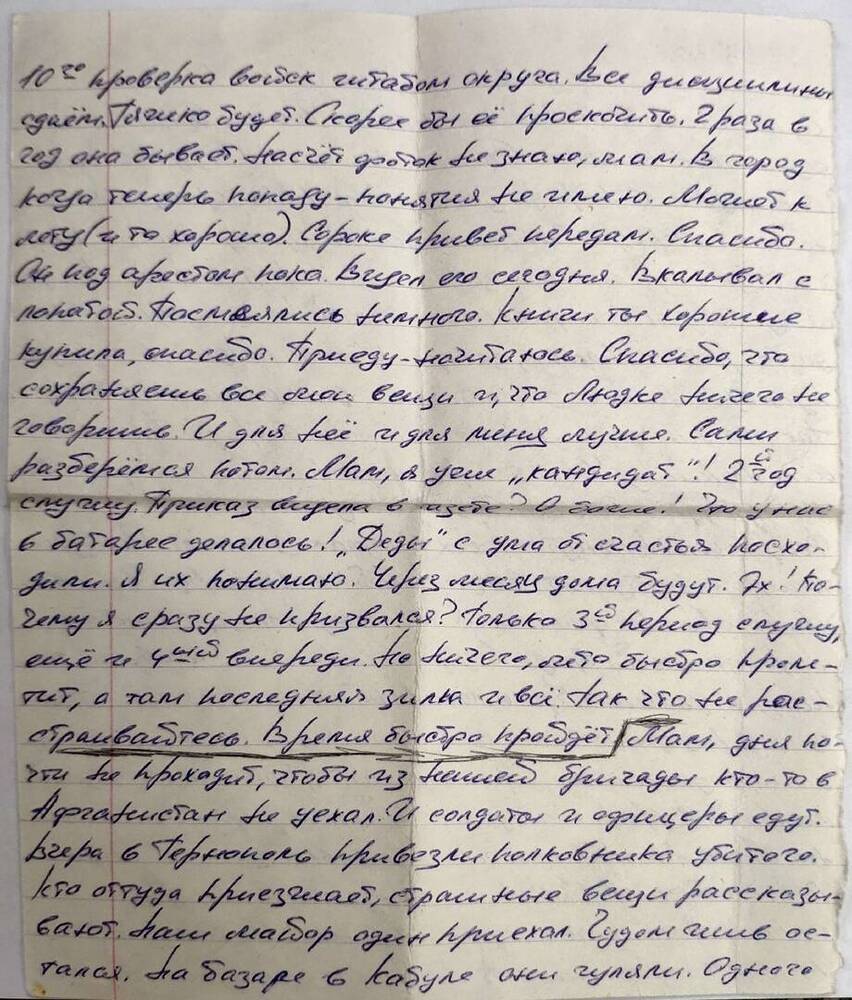 10го проверка войск штабом округа. Все дисциплины
сдаём. Тяжко будет. Скорее бы её проскочить. 2 раза в
год она бывает. Насчёт фоток не знаю, мам. В город
когда теперь попаду – понятия не имею. Может к
лету (и то хорошо). Сороке привет передам. Спасибо.
Он под арестом пока. Видел его сегодня. Вкалывал с
лопатой. Посмеялись немного. Книги ты хорошие
купила, спасибо. Приеду – начитаюсь. Спасибо, что
сохраняешь все мои вещи и, что Людке ничего не
говоришь. И для неё и для меня лучше. Сами
разберёмся потом. Мам, я уже „кандидат"! 2й год
служу. Приказ видела в газете? О боже! Что у нас
в батарее делалось! „Деды" с ума от счастья посхо-
дили. Я их понимаю. Через месяц дома будут. Эх! По-
чему я сразу не призвался? Только 3й период служу,
ещё и 4ый впереди. Но ничего, лето быстро проле-
тит, а там последняя зима и всё. Так что не рас-
страивайтесь. Время быстро пройдёт. Мам, дня по-
чти не проходит, чтобы из нашей бригады кто-то в
Афганистан не уехал. И солдаты и офицеры едут.
Вчера в Тернополь привезли полковника убитого.
Кто оттуда приезжает, страшные вещи рассказы-
вают. Наш майор один приехал. Чудом жив ос-
тался. На базаре в Кабуле они гуляли. Одного